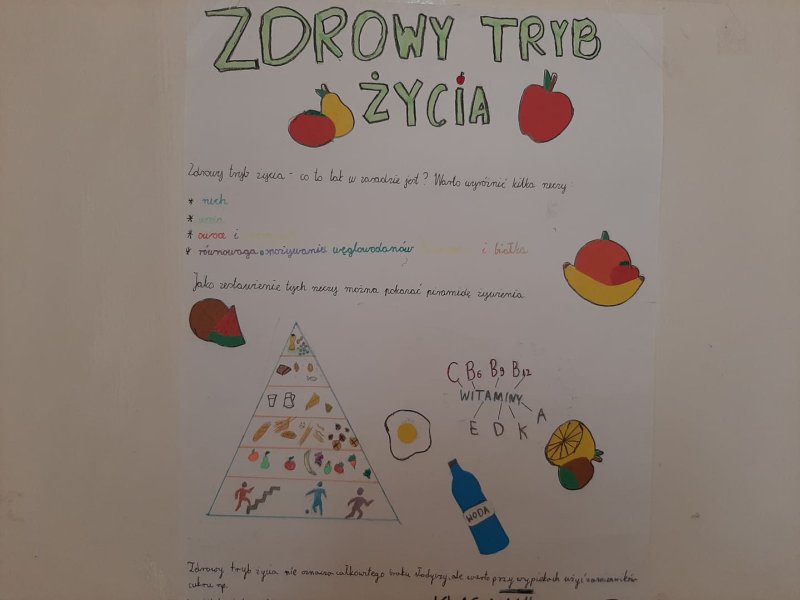 ZDROWY TRYB
ŻYCIA
Zdrowy tryb życia - co to tak w zasadzie jest? Warto wyróżnić kilka rzeczy:
* ruch
*
* owoce i
* równowaga spożywanie węglowodanów i białka
Jako zestawienie tych rzeczy można pokazać piramidę żywienia
C B6 B9 B12
WITAMINY
E D K A
WODA
Zdrowy tryb życia nie oznacza całkowitego braku słodyczy, ale warto przy wypiekach użyć zamienników
cukru np.